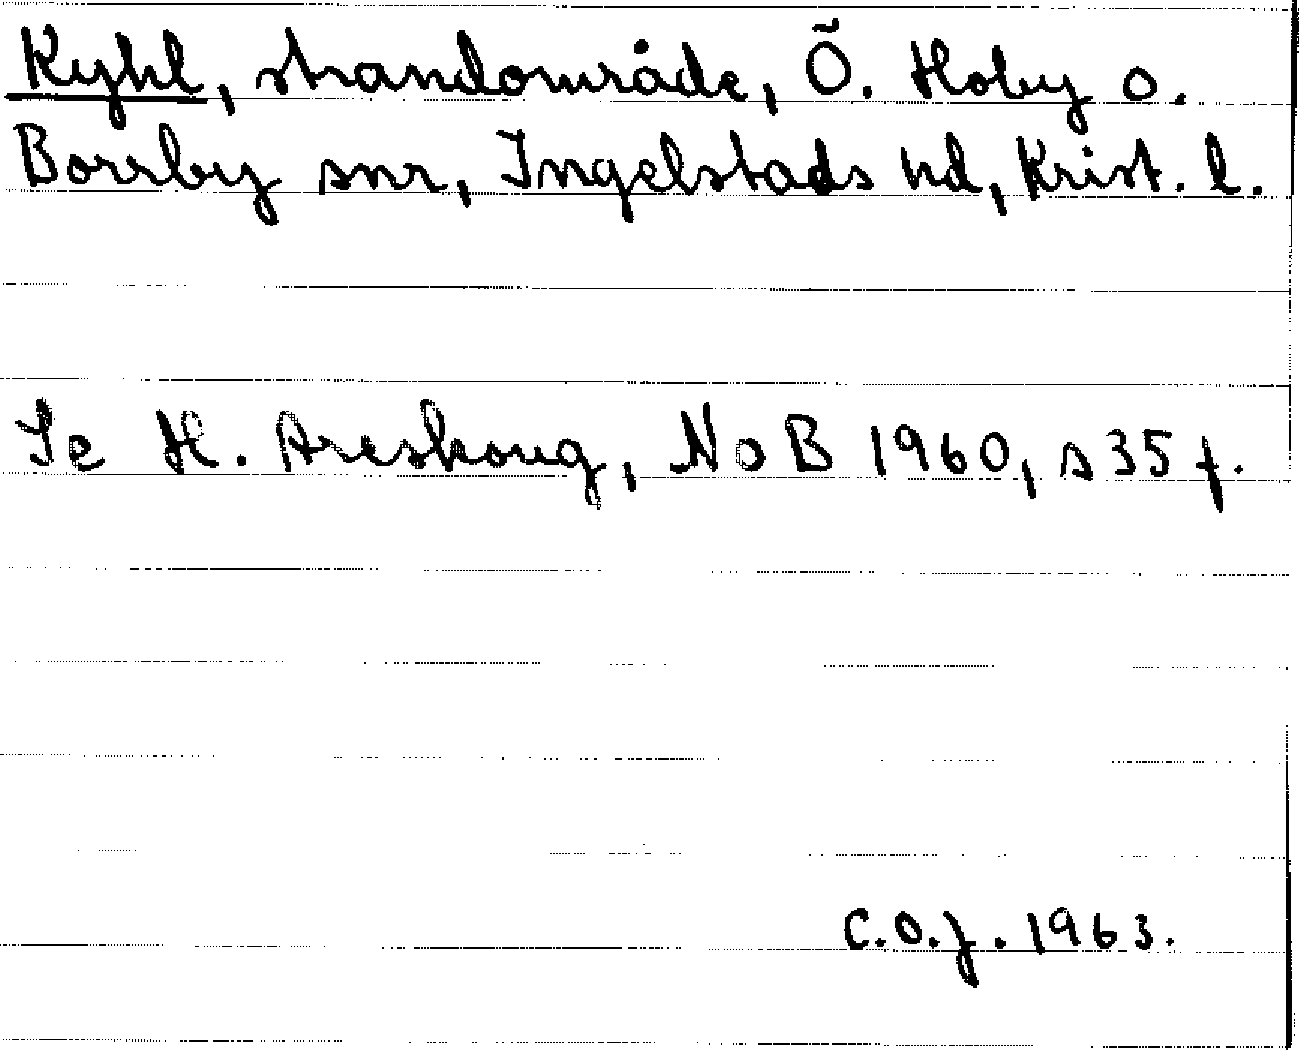 Kyhl, strandområde, Ö. Hoby o.
Borrby snr, Ingelstads hd, Krist. l.
Se H. Areskoug, NoB 1960, s 35 f.
C.O.J. 1963.